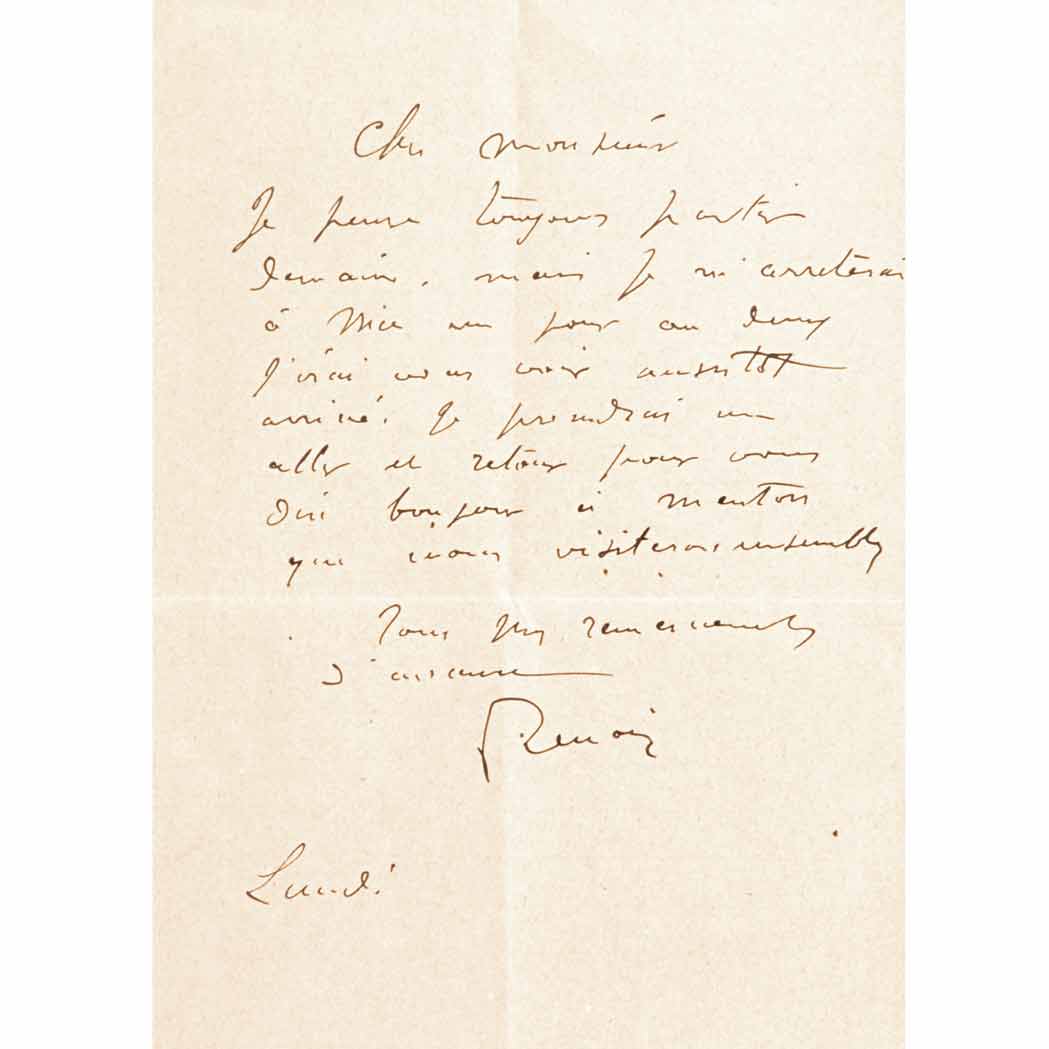 Cher monsieur
Je pense toujours partir
demain, mais je m'arreterai
à Nice un jour ou deux
j'irai vous voir aussitot
arrivé. Je prendrai un
aller et retour pour vous
dire bonjour à menton
que nous visiterons ensemble
Tous mes remerciements
d'avance
Renoir
Lundi